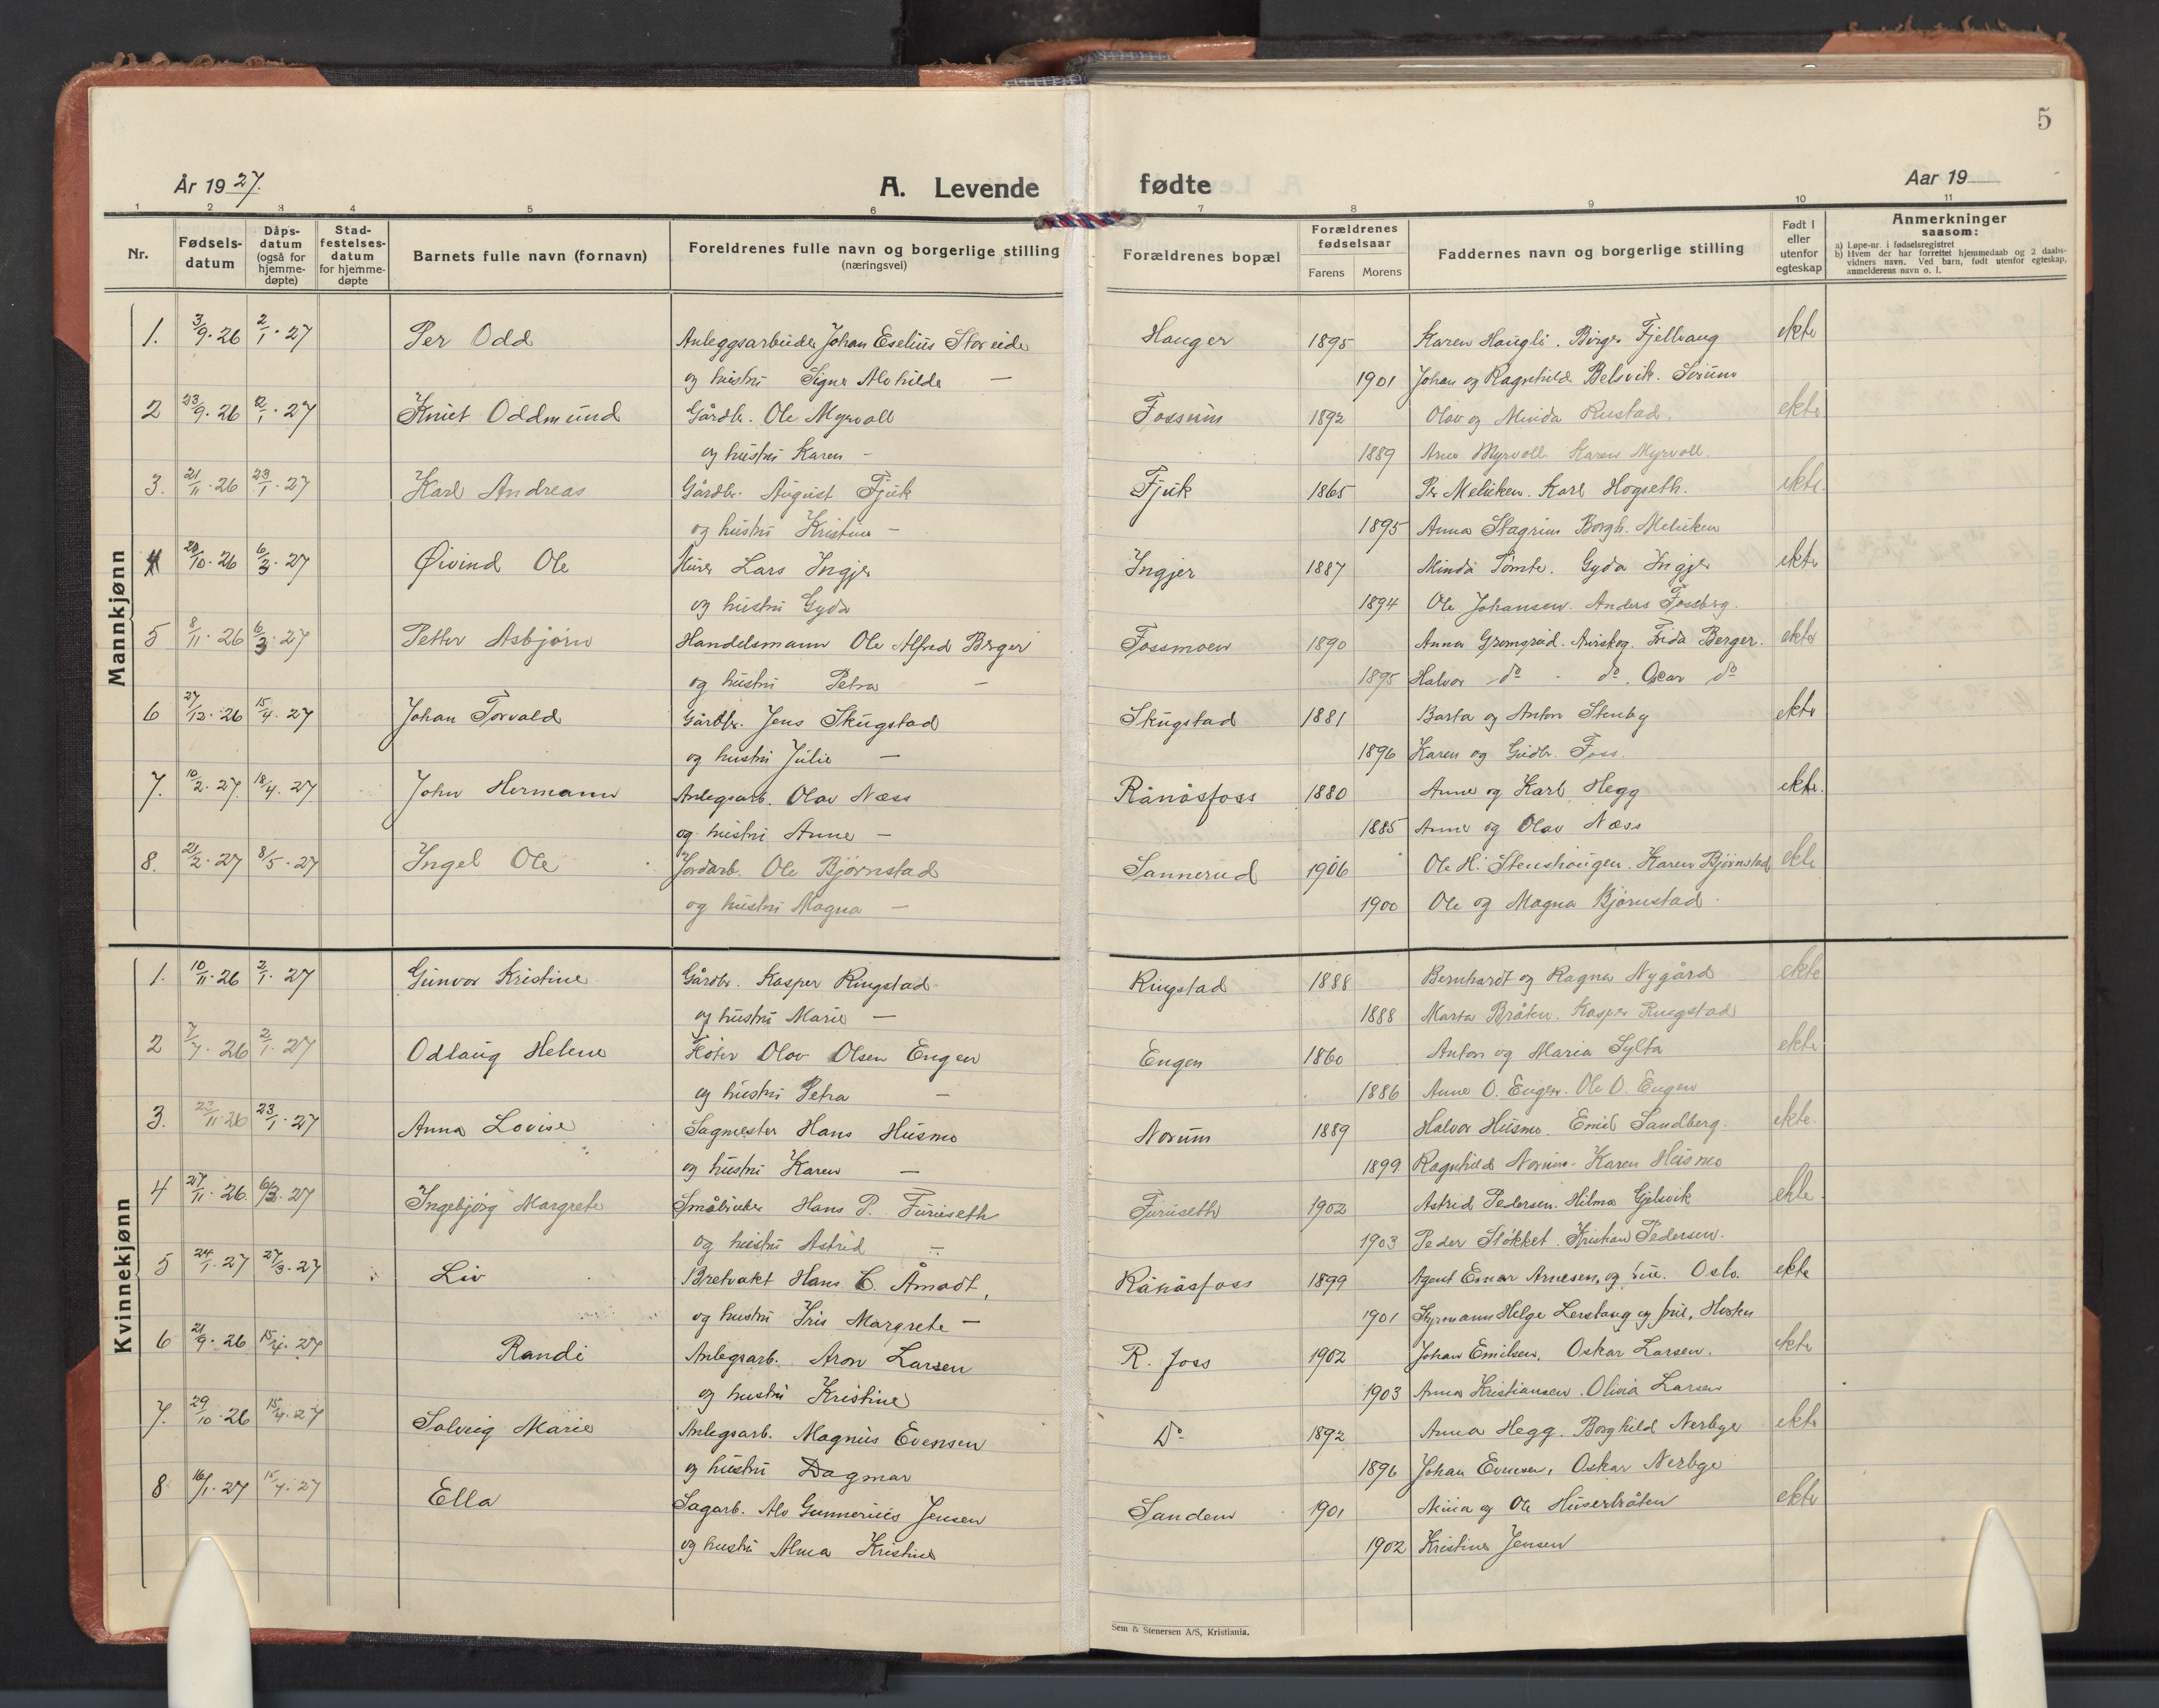 5
År 1927.
A. Levende
fødte
Aar 19
1 2 3 4 5 6 7 8 9 10 11
Nr.
Fødsels-
datum
Dåps-
datum
(også for
hjemme-
døpte)
Stad-
festelses-
datum
for hjemme-
døpte
Barnets fulle navn (fornavn)
Foreldrenes fulle navn og borgerlige stilling
(næringsvei)
Forældrenes bopæl
Forældrenes
fødselsaar
Farens Morens
Faddernes navn og borgerlige stilling
Født i
eller
utenfor
egteskap
Anmerkninger
saasom:
a) Løpe-nr. i fødselsregistret
b) Hvem der har forrettet hjemmedaab og 2 daabs-
vidners navn. Ved barn, født utenfor egteskap,
anmelderens navn o. l.
Mannkjønn
1. 3/9. 26 2/1. 27 Per Odd Anleggsarbeider Johan Eselius Storeide Hauger 1895 Karen Haugli. Birger Fjellvang ekte
og hustru Signe Alvhilde — 1901 Johan og Ragnhild Belsvik. Sørum
2 23/9. 26 2/1. 27 Knut Oddmund Gårdbr. Ole Myrvoll Fossum 1892 Olav og Minda Rustad. ekte
og hustru Karen - 1889 Arne Myrvoll Karen Myrvoll.
3. 21/11. 26 23/1. 27 Karl Andreas Gårdbr. August Fjuk Fjuk 1865 Per Meliken. Karl Hogseth. ekte.
og hustru Kristine - 1895 Anna Stagrim Borgh. Meliken
4 20/10. 26 6/3. 27 Øivind Ole Lars Ingjer Ingjer 1887 Minda Tomte. Gyda Ingjer ekte
og hustru Gyda 1894 Ole Johansen. Anders Fossberg.
5 8/11. 26 6/3. 27 Petter Asbjørn Handelsmann Ole Alfred Berger Fossmoen 1890 Anna Gromsrud. Aurskog. Frida Berger. ekte
og hustru Petra — 1895 Halvor do - do. Oscar do
6 27/12. 26 15/4. 27 Johan Torvald Gårdbr. Jens Skugstad Skugstad 1881 Barta og Anton Stenby ekte
og hustru Julie — 1896 Karen og Gudbr. Foss.
7. 10/2. 27. 18/4. 27 John Hermann Anlegsarb. Olav Næss Rånåsfoss 1880 Anne og Karl Hegg ekte.
og hustru Anne — 1885 Anne og Olav Næss
8. 21/2. 27 8/5. 27 Ingel Ole Jordarb. Ole Bjørnstad Sannerud 1906 Ole H. Stenshaugen. Karen Bjørnstad ekte
og hustru Magna — 1900 Ole og Magna Bjørnstad.
Kvinnekjønn
1. 10/11. 26 2/1. 27 Gunvor Kristine Gårdbr. Kasper Ringstad Ringstad 1888 Bernhardt og Ragna Nygård ekte
og hustru Marie — 1888 Marta Bråten. Kasper Ringstad
2 7/7. 26 2/1. 27 Odlaug Helene Olav Olsen Engen Engen 1860 Anton og Maria Sylta ekte
og hustru Petra — 1886 Anne O. Engen. Ole O. Engen
3. 23/11. 26 23/1. 27 Anna Lovise Sagmester Hans Husmo Norum 1889 Halvor Husmo. Emil Sandberg. ekte.
og hustru Karen — 1899 Ragnhild Norum. Karen Husmo
4 27/11. 26. 6/3. 27 Ingebjørg Margrete Småbruker Hans P. Furuseth Furuseth 1902 Astrid Pedersen. Hilma Gjelsvik ekte
og hustru Astrid — 1903 Peder Slökket. Kristian Pedersen.
5 24/1. 27 27/3. 27 Liv Bretvakt Hans C. Åmodt, Rånåsfoss 1899 Agent Einar Arnesen, og frue. Oslo. ekte
og hustru Iris Margrete — 1901 Styrmann Helge Lerstang og frue,
6 21/9. 26 15/4. 27 Randi Anlegsarb. Aron Larsen R. foss 1902 Johan Emilsen, Oskar Larsen. ekte
og hustru Kristine 1903 Anna Kristiansen. Olivia Larsen
7. 29/10. 26 15/4. 27 Solveig Marie Anlegsarb. Magnus Evensen Do 1892 Anna Hegg. Borghild Nerbye ekte
og hustru Dagmar 1896 Johan Evensen, Oskar Nerbye
8 16/1. 27 15/4. 27 Ella Sagarb. Alv Gunnerius Jensen Sanden 1901 og Ole Huserbråten ekte
og hustru Alma Kristine 1902 Kristine Jensen
Sem & Stenersen A/S, Kristiania.